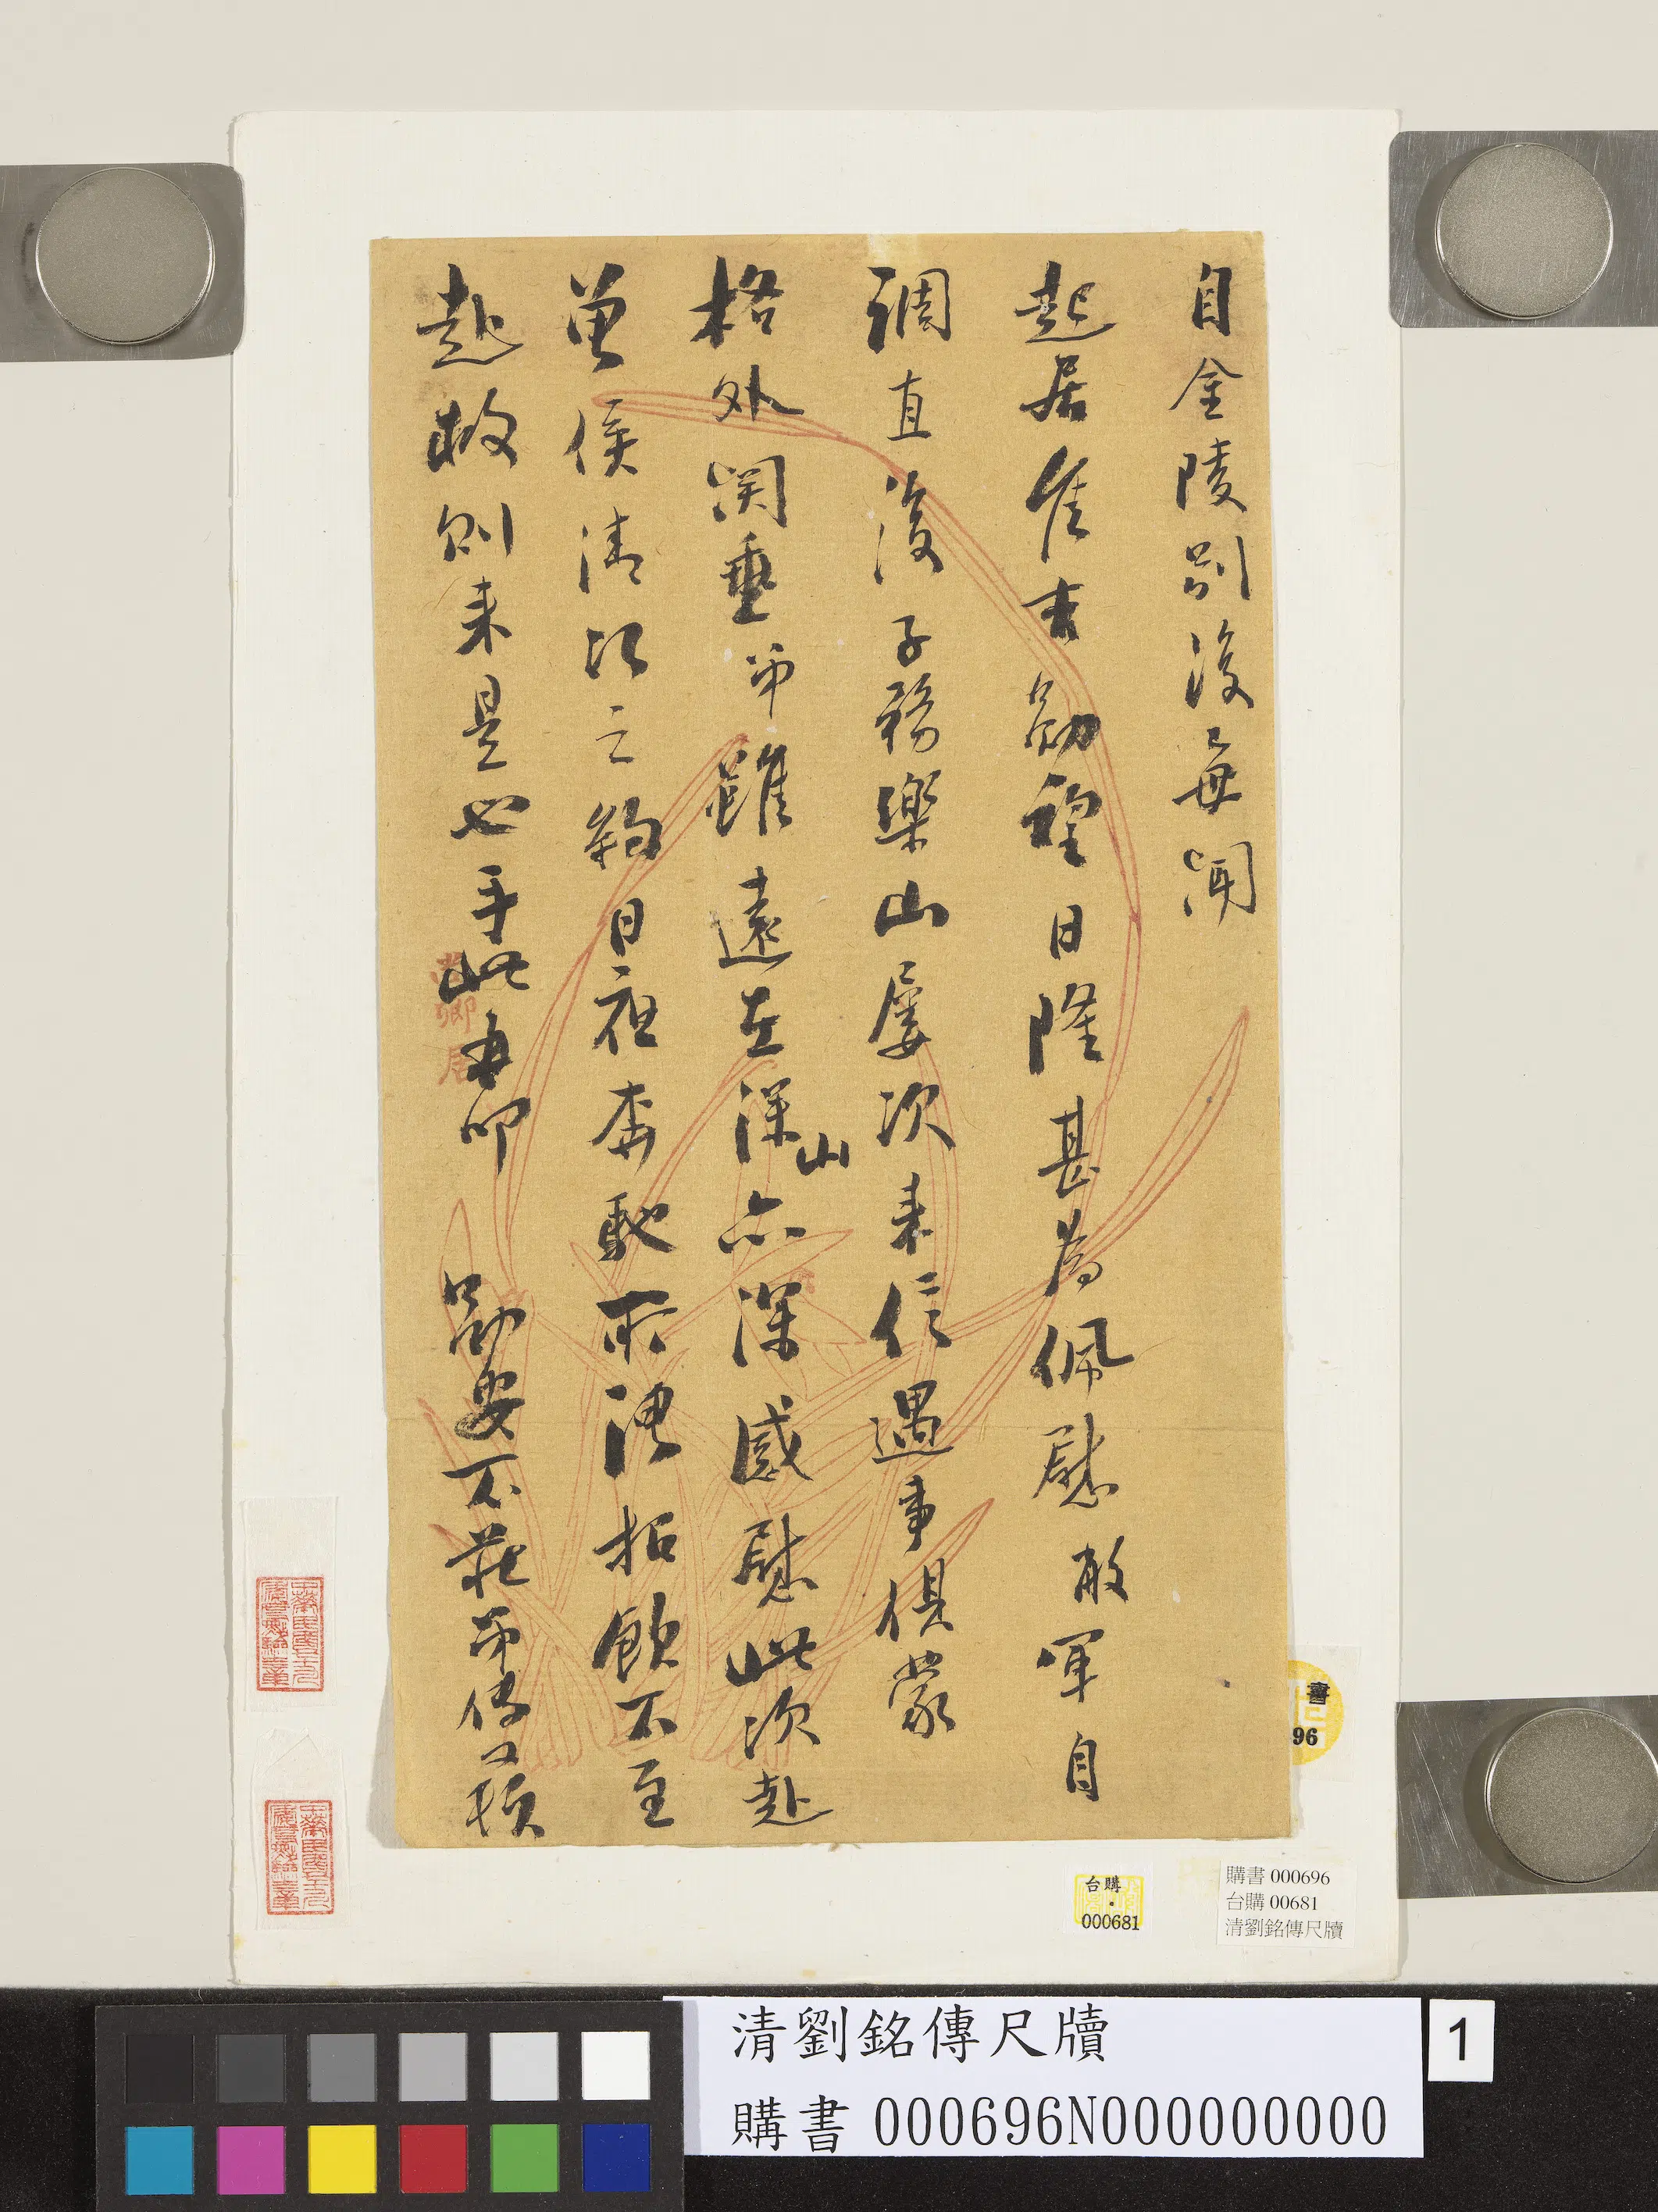 自金陵別後每聞
起居佳吉勛望日隆甚為佩慰敝軍自
調直後子務樂山屢次來信遇事俱蒙
格外關垂弟雖遠在深山亦深感慰此次赴
曾侯清江之約日夜奔馳所謂招飲不至
赴救則來是也手此叩 勛安不莊弟傳又頓
書
96
台購
000681
購書 000696
台購 00681
清劉銘傳尺牘
清劉銘傳尺牘
購書 000696N000000000
1